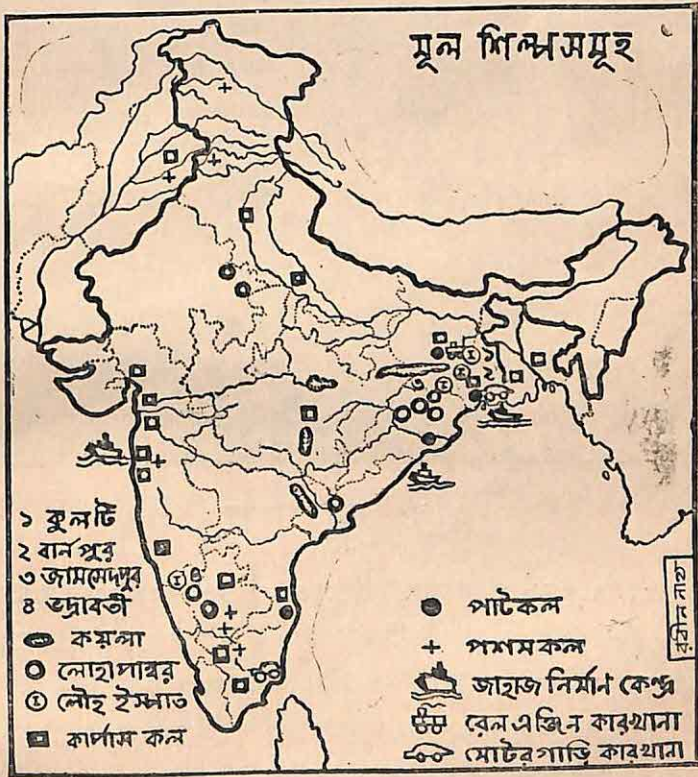 মূল শিল্পসমূহ
১ কুলটি
২ বার্নপুর
৩ জামসেদপুর
৪ ভদ্রাবতী
কয়লা
লোহাপাথর
লৌহ ইস্পাত
কার্পাস কল
পাটকল
পশমকল
জাহাজ নির্মাণ কেন্দ্র
রেল এঞ্জিন কারখানা
মোটরগাড়ি কারখানা
১
২
৩
৪